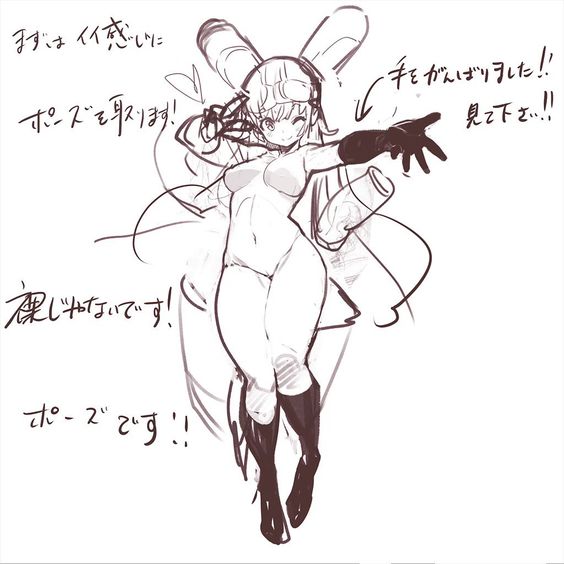 まずは イイ感じに
ポーズを取ります!
手をがんばりました!!
見て下さい!!
裸じゃないです!
ポーズです!!